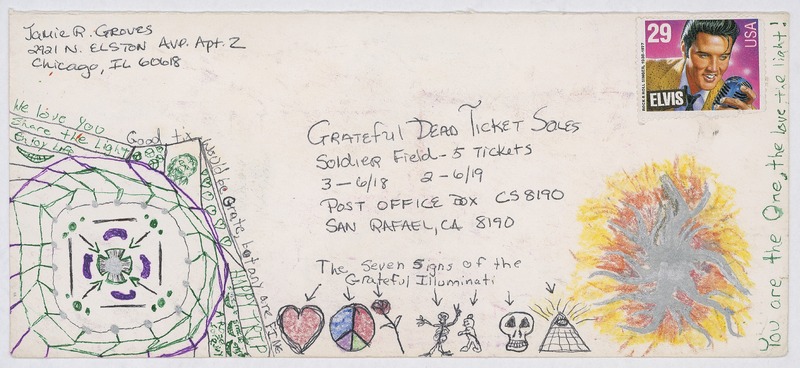 Jamie R. Groves
2921 N. ELSTON AVE. Apt. 2
Chicago, IL 60618
29
USA
ELVIS
We love YOU
Share the Light
Enjoy Life
Good tix would be Grate, but any are FINE
HAPPY TRIP
GRATEFUL DEAD TICKET SALES
Soldier Field - 5 Tickets
3 - 6/18 2 - 6/19
POST OFFICE BOX CS8190
SAN RAFAEL, CA 8190
The Seven Signs of the
Grateful Illuminati
You are the One, the Love the light!